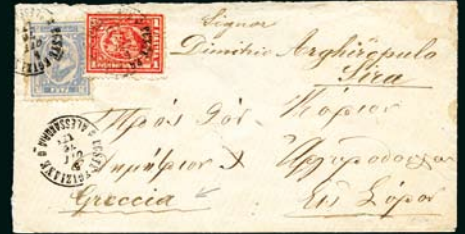 Signor
Dimitrio Arghiropulo
Sira
Πρὸς Τὸν Κύριον
Δημήτριον Δ Ἀργυρόπουλον
Greccia
Εἰς Σύραν
POSTE EGIZIANE
ALESSANDRIA